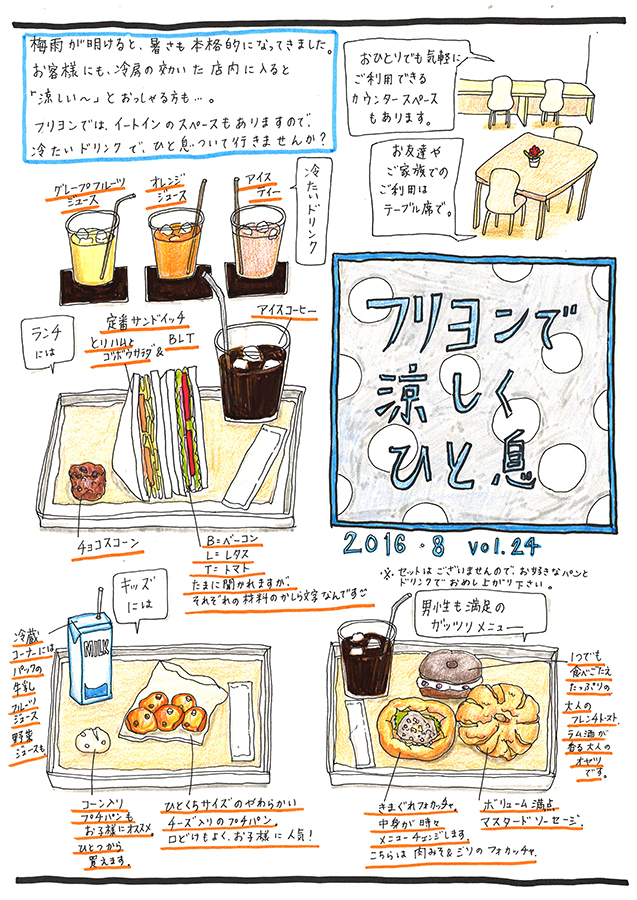 梅雨が明けると、暑さも本格的になってきました。
お客様にも、冷房の効いた店内に入ると
「涼しい〜」とおっしゃる方も…。
フリヨンでは、イートインのスペースもありますので、
冷たいドリンクで、ひと息ついて行きませんか?
おひとりでも気軽に
ご利用できる
カウンタースペース
もあります。
お友達や
ご家族での
ご利用は
テーブル席で。
冷たいドリンク
グレープフルーツ
ジュース
オレンジ
ジュース
アイス
ティー
フリヨンで
涼しく
ひと息
2016・8 vol.24
※セットはございませんので、お好きなパンと
ドリンクでお召し上がり下さい。
ランチ
には
定番サンドイッチ
とりハムと
ゴボウサラダ & BLT
アイスコーヒー
チョコスコーン
B=ベーコン
L=レタス
T=トマト
たまに聞かれますが、
それぞれの材料のかしら文字なんです
キッズ
には
冷蔵
コーナーには
パックの
牛乳
フルーツ
ジュース
野菜
ジュースも
MILK
コーン入り
プチパンも
お子様にオススメ。
ひとつから
買えます。
ひとくちサイズのやわらかい
チーズ入りのプチパン。
口どけもよく、お子様に人気!
男性も満足の
ガッツリメニュー
1つでも
食べごたえ
たっぷりの
大人の
フレンチトースト。
ラム酒が
香る大人の
オヤツ
です。
きまぐれフォカッチャ。
中身が時々
メニューチェンジします。
こちらは肉みそ&ジリのフォカッチャ。
ボリューム満点
マスタードソーセージ。